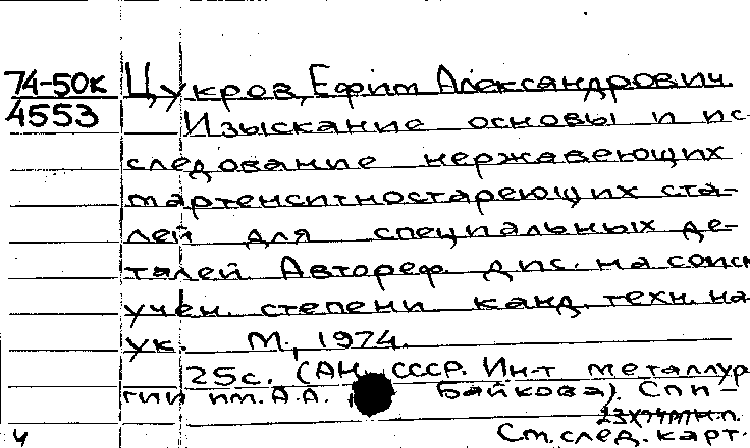 74-50к Цукров, Ефрим Александрович.
4553 Изыскание основы и ис-
следование нержавеющих
мартенситностареющих ста-
лей для специальных де-
талей. Автореф. дис. на соиск
учен. степени канд. техн. на
ук. М., 1974.
25с. (АН СССР. Ин-т металлур
гии им. А.А. Байкова). Спи-
Ч См. след. карт.